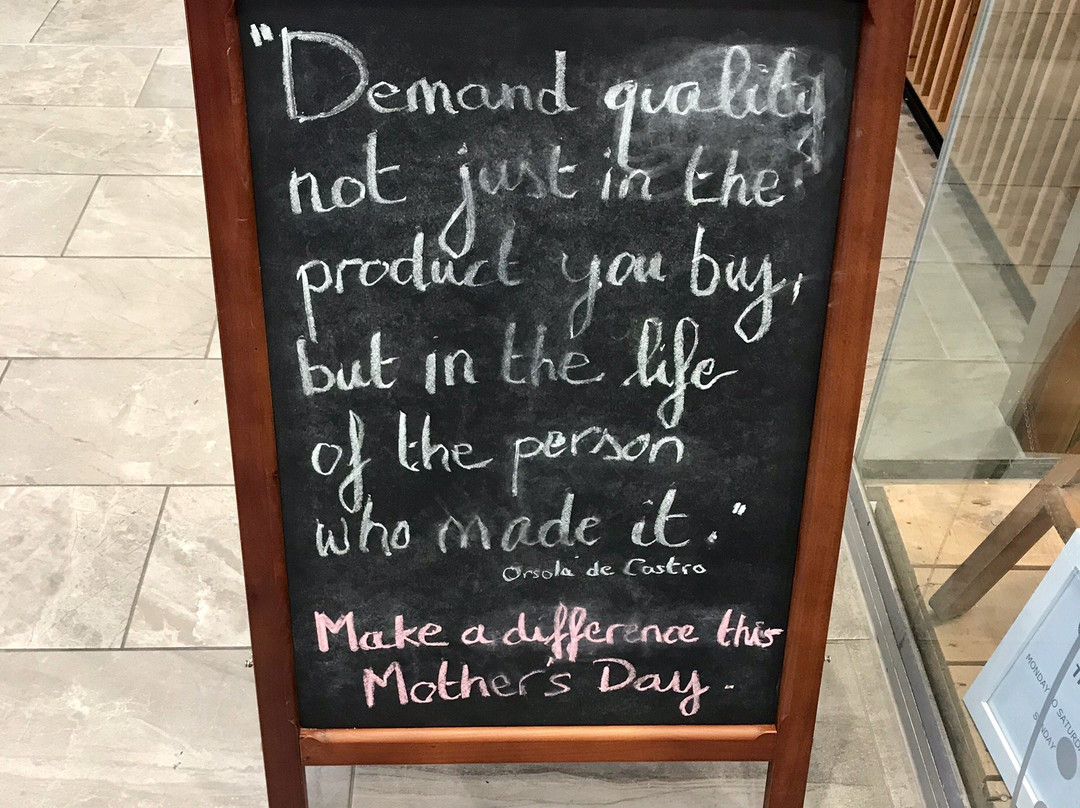 "Demand quality
not just in the
product you buy,
but in the life
of the person
who made it."
Orsola de Castro
Make a difference this
Mother's Day.
MONDAY TO SATURD
SUNDAY